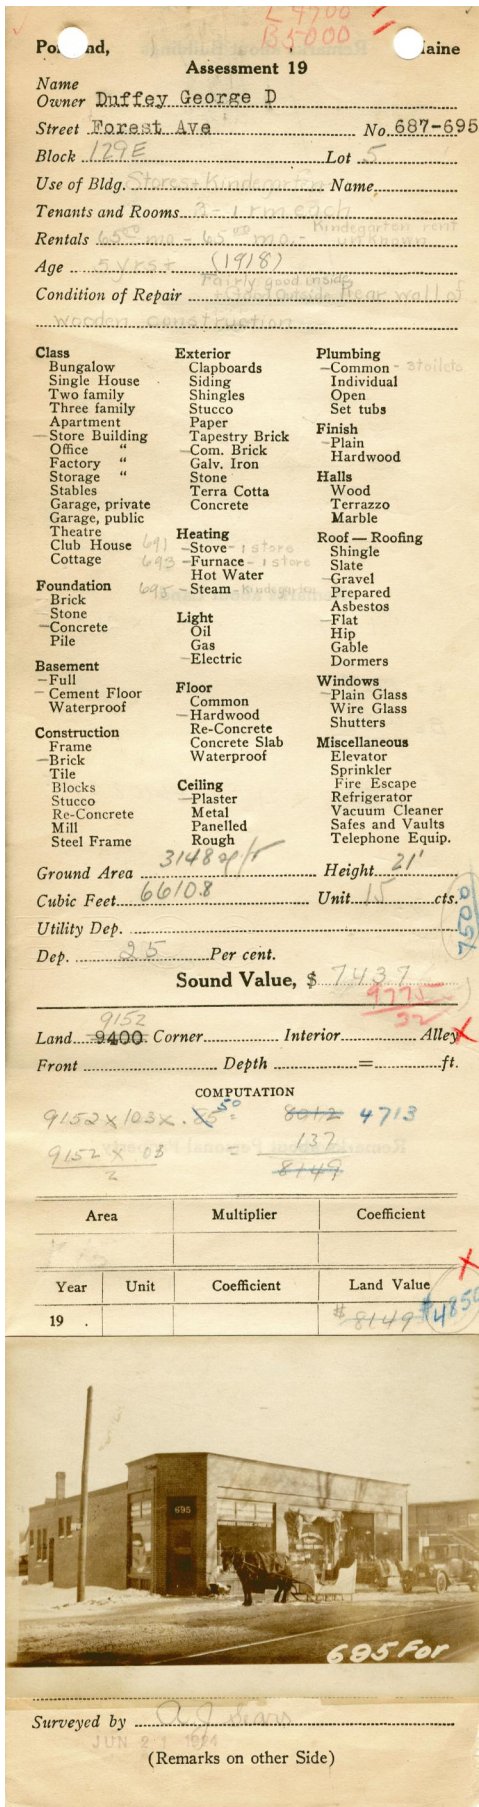 L 4900
B 5000
Portland, Maine
Assessment 19
Name
Owner Duffey George D
Street Forest Ave No. 687-695
Block 129E Lot 5
Use of Bldg. Stores + Kindegarten Name
Tenants and Rooms 2 - 1 rm each
Kindegarten rent
Rentals 65.00 mo - 65.00 mo. - unknown
Age 5 yrs + (1918)
Fairly good inside
Condition of Repair Good outside Rear wall of
wooden construction
Class
Bungalow
Single House
Two family
Three family
Apartment
– Store Building
Office "
Factory "
Storage "
Stables
Garage, private
Garage, public
Theatre
Club House
Cottage
Foundation
Brick
Stone
– Concrete
Pile
Basement
– Full
– Cement Floor
Waterproof
Construction
Frame
– Brick
Tile
Blocks
Stucco
Re-Concrete
Mill
Steel Frame
Exterior
Clapboards
Siding
Shingles
Stucco
Paper
Tapestry Brick
– Com. Brick
Galv. Iron
Stone
Terra Cotta
Concrete
Heating
691 – Stove - 1 store
693 – Furnace - 1 store
Hot Water
695 – Steam - Kindegarten
Light
Oil
Gas
– Electric
Floor
Common
– Hardwood
Re-Concrete
Concrete Slab
Waterproof
Ceiling
– Plaster
Metal
Panelled
Rough
Plumbing
– Common - 3 toilets
Individual
Open
Set tubs
Finish
– Plain
Hardwood
Halls
Wood
Terrazzo
Marble
Roof — Roofing
Shingle
Slate
– Gravel
Prepared
Asbestos
– Flat
Hip
Gable
Dormers
Windows
– Plain Glass
Wire Glass
Shutters
Miscellaneous
Elevator
Sprinkler
Fire Escape
Refrigerator
Vacuum Cleaner
Safes and Vaults
Telephone Equip.
Ground Area 3148 sq/ft Height 21'
Cubic Feet 66108 Unit 15 cts.
7500
Utility Dep.
Dep. 25 Per cent.
Sound Value, $ 7437
9775
32
9152
Land 9400 Corner Interior Alley
Front Depth = ft.
COMPUTATION
9152 x 103 x .85 50 = 8012 4713
9152 x 03 = 137
2 8149
Area Multiplier Coefficient
Year Unit Coefficient Land Value
19 . $8149 $4850
695
695 For
Surveyed by A J Sears
JUN 21 1924
(Remarks on other Side)